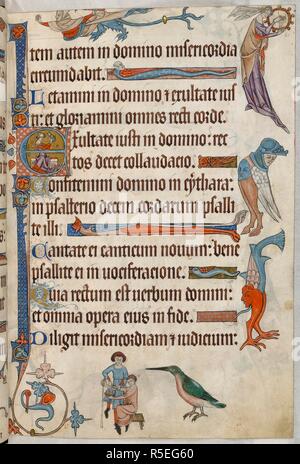 tem autem in domino misericordia
circumdabit.
Letamini in domino & exultate ius
ti: et gloriamini omnes recti corde.
Exultate iusti in domino: rec
tos decet collaudacio.
Confitemini domino in cythara:
in psalterio decem cordarum psalli
te illi:
Cantate ei canticum novum: bene
psallite ei in vociferacione.
Quia rectum est verbum domini:
et omnia opera eius in fide.
Diligit misericordiam & iudicium:
alamy
Image ID: R5EG60
www.alamy.com